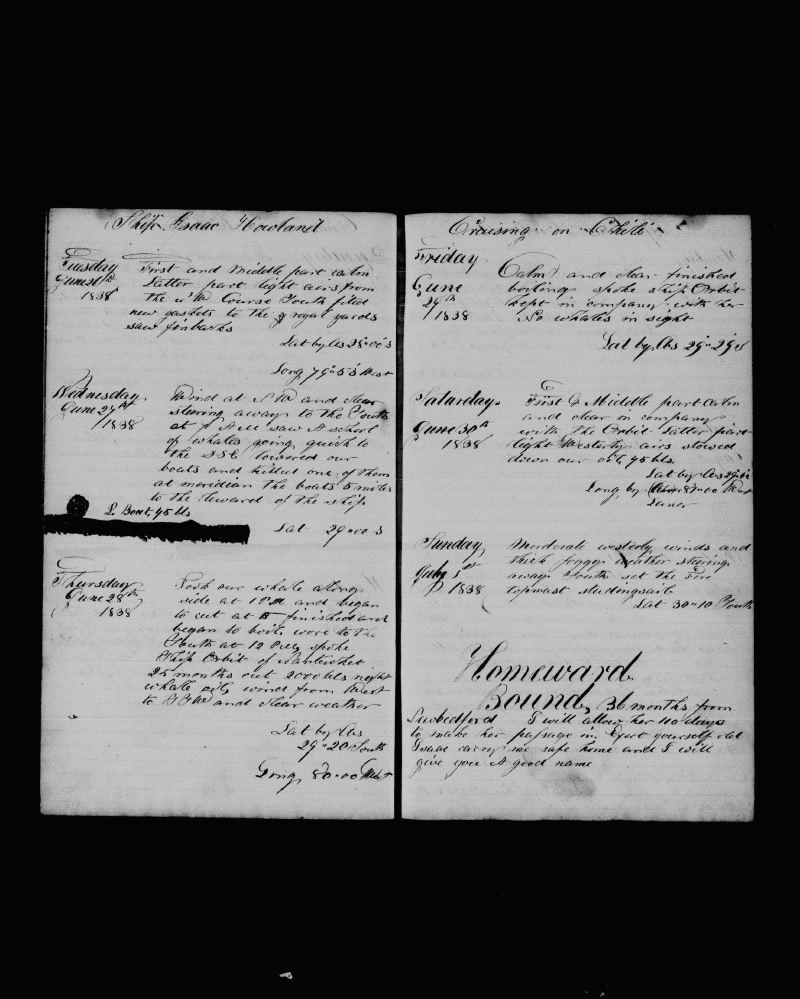 Ship Isaac Howland
Tuesday
June 26th
1838
First and middle part calm
Latter part light airs from
the N W Course South fited
new gaskets to the g royal yards
saw finbacks
Lat by Obs 28"00 S
Long 79"53 West
Wednesday
June 27th
/1838
Wind at N W and clear
steering away to the South
at 7 A M saw A school
of whales going quick to
the S S E lowered our
boats and killed one of them
at meridian the boats 5 miles
to the leward of the ship
L Boat 45 bls
Lat 29"00 S
Thursday
June 28th
1838
Took our whale along
side at 1 P M and began
to cut at finished and
began to boil wore to the
South at 12 spoke
Ship Orbit of Nantucket
25 months out 2000 bls night
whale oil, wind from West
to and clear weather
Lat by Obs
29"20 South
Long 80"00 West
Cruising on Chile
Friday
June
29th
/1838
Calm and clear finished
boiling spoke ship Orbit
kept in company with her
No whales in sight
Lat by Obs 29"29 S
Saturday
June 30th
1838
First & Middle part calm
and clear in company
with the Orbit Latter part
light Westerly airs stowed
down our oil, 45 bls
Lat by Obs
Long by 8"00 West
Luner
Sunday
July 1st
1838
Morderate westerly winds and
thick foggy weather steering
away South set the Fore
topmast studingsail
Lat 30"10 South
Homeward
Bound, 36 months from
Nwbedford I will allow her 110 days
to make her passage in. Exert yourself old
Isaac carry me safe home and I will
give you A good name